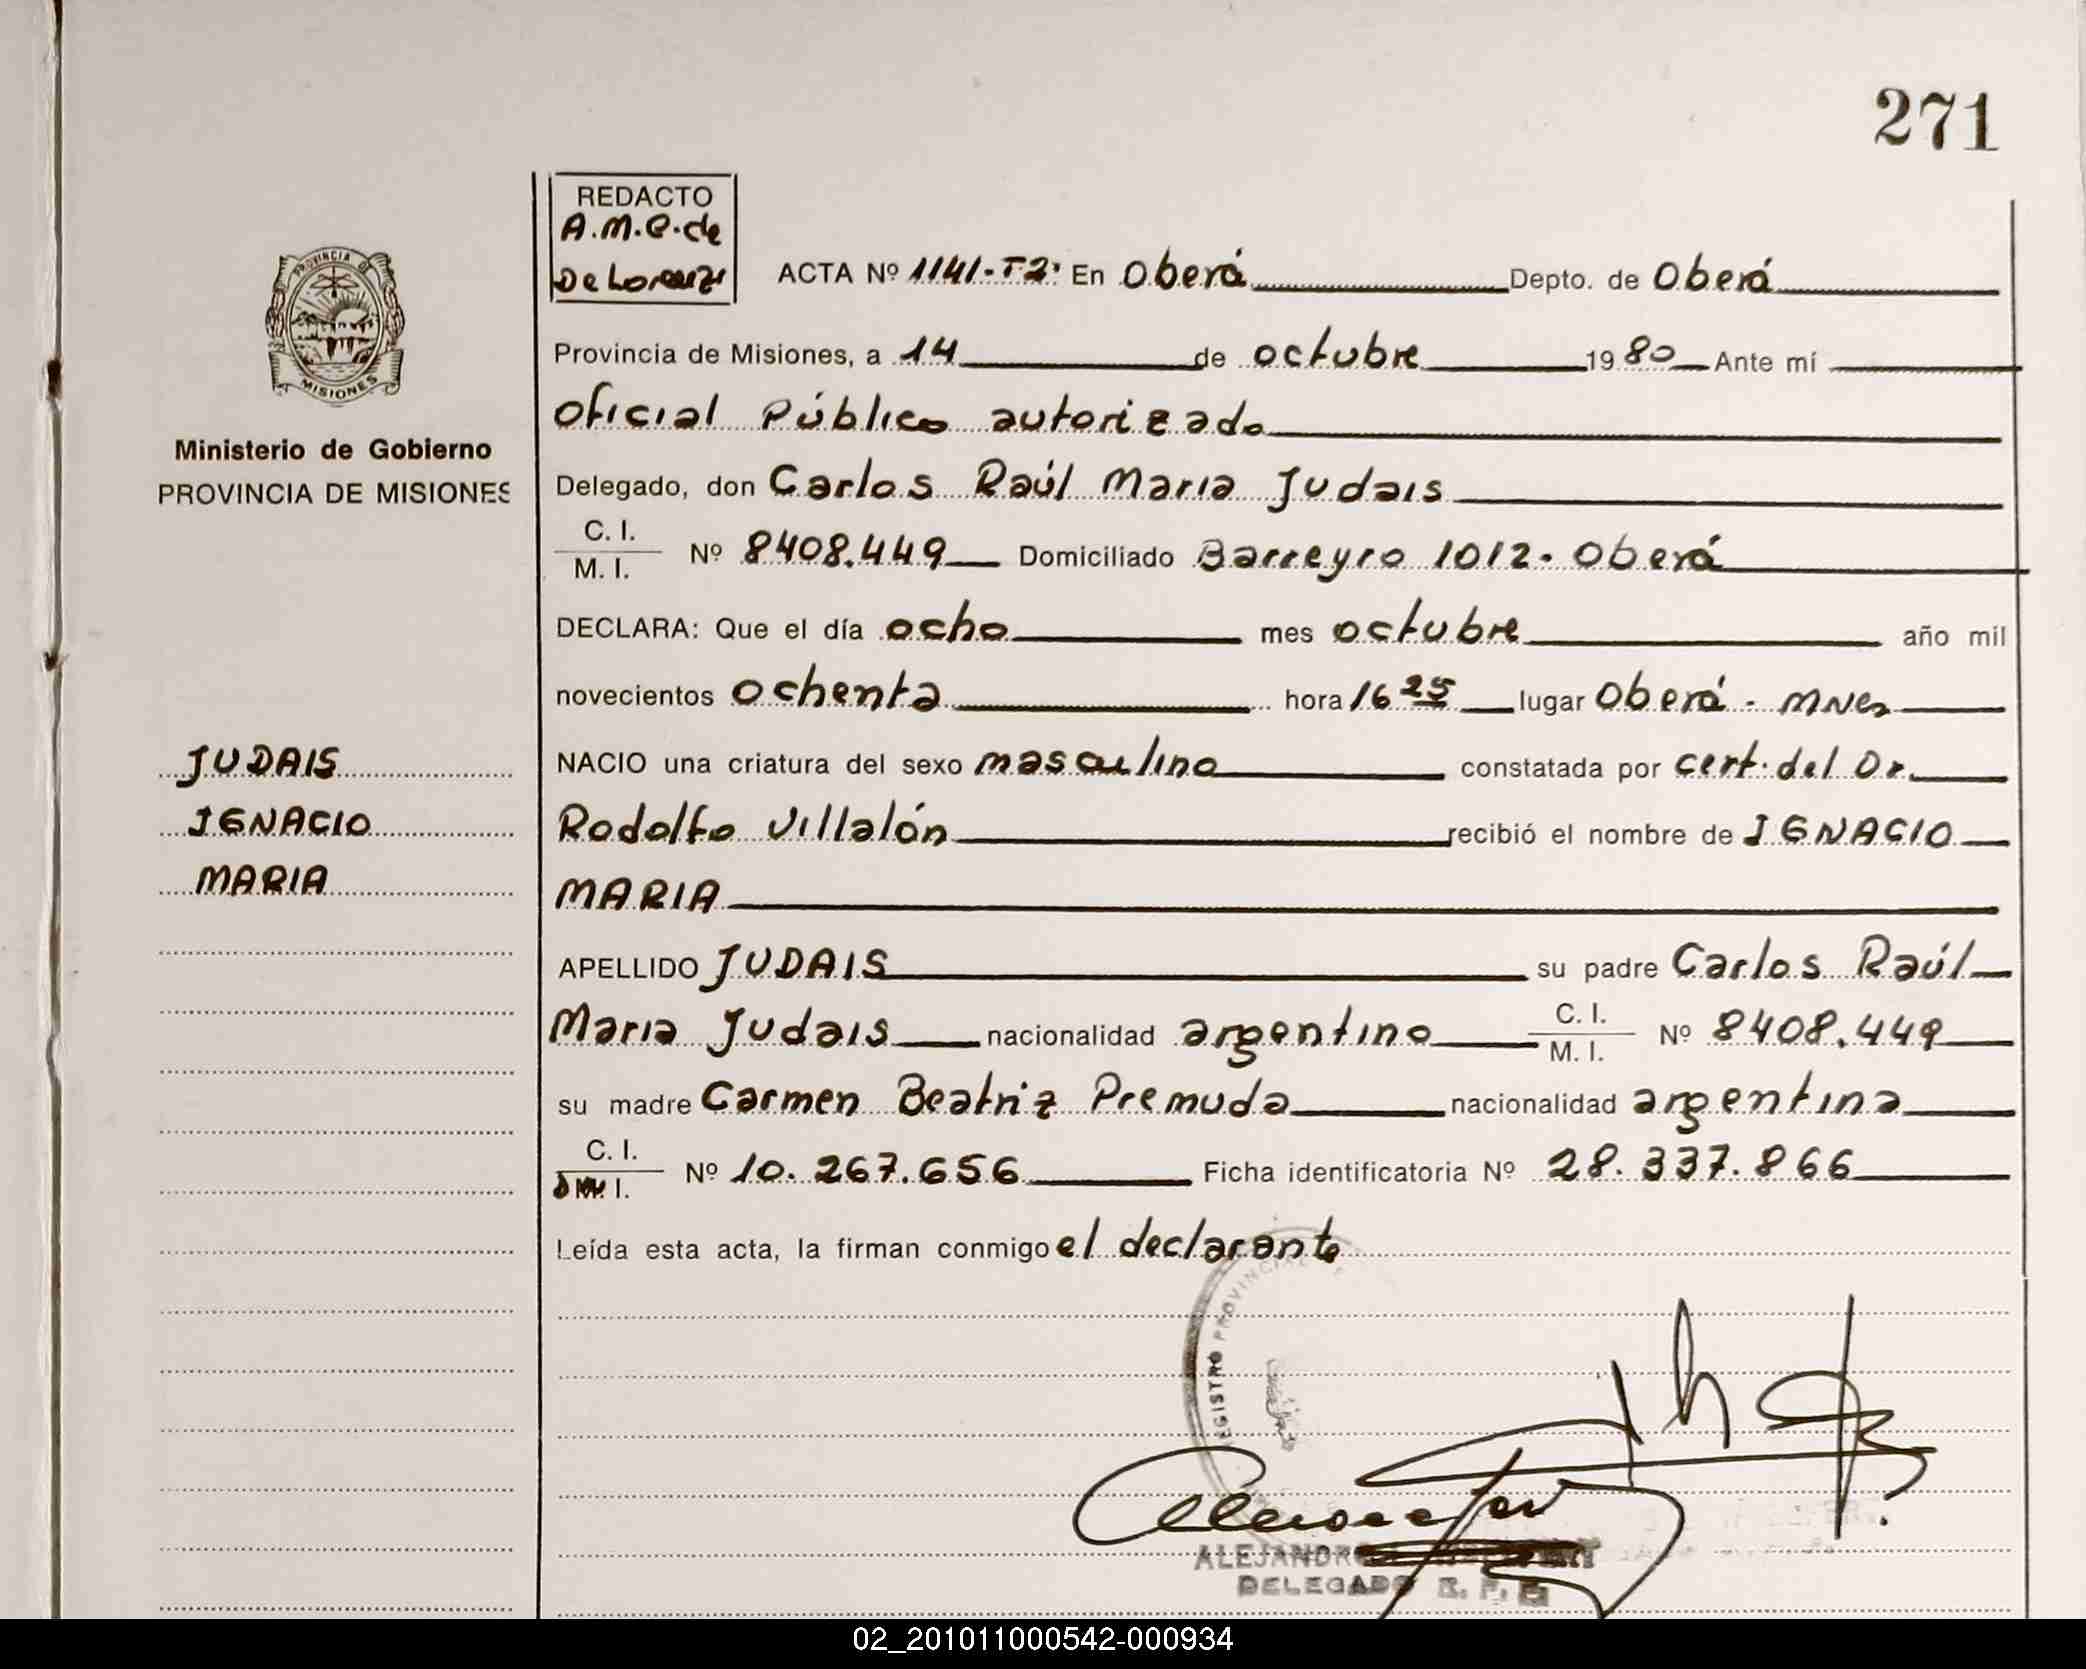 271
REDACTO
A.M.C. de
De Lorenzi
ACTA Nº 1141-T2º En Oberá Depto. de Oberá
PROVINCIA DE
MISIONES
Provincia de Misiones, a 14 de octubre 1980 Ante mí
Oficial Público autorizado
Ministerio de Gobierno
PROVINCIA DE MISIONES
Delegado, don Carlos Raúl Maria Judais
C. I.
M. I. Nº 8408.449 Domiciliado Barreyro 1012 - Oberá
DECLARA: Que el día ocho mes octubre año mil
novecientos ochenta hora 16 25 lugar Oberá - Mnes
JUDAIS
IGNACIO
MARIA
NACIO una criatura del sexo masculino constatada por cert. del Dr.
Rodolfo Villalón recibió el nombre de IGNACIO
MARIA
APELLIDO JUDAIS su padre Carlos Raúl
Maria Judais nacionalidad argentino C. I. M. I. Nº 8408.449
su madre Carmen Beatriz Premuda nacionalidad argentina
C. I.
Nº 10.267.656 Ficha identificatoria Nº 28.337.866
Leída esta acta, la firman conmigo el declarante
REGISTRO PROVINCIAL DE
ALEJANDRO
DELEGADO R. P.
02_201011000542-000934